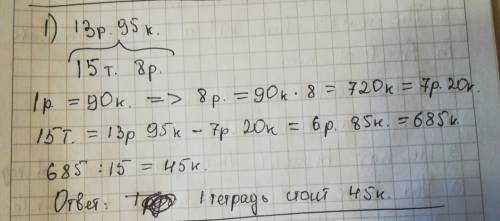 1) 13р. 95к.
15т. 8р.
1р = 90к. => 8р. = 90к · 8 = 720к = 7р. 20к.
15т. = 13р 95к - 7р 20к = 6р. 85к. = 685к.
685 : 15 = 45к.
Ответ: 1 тетрадь стоит 45к.